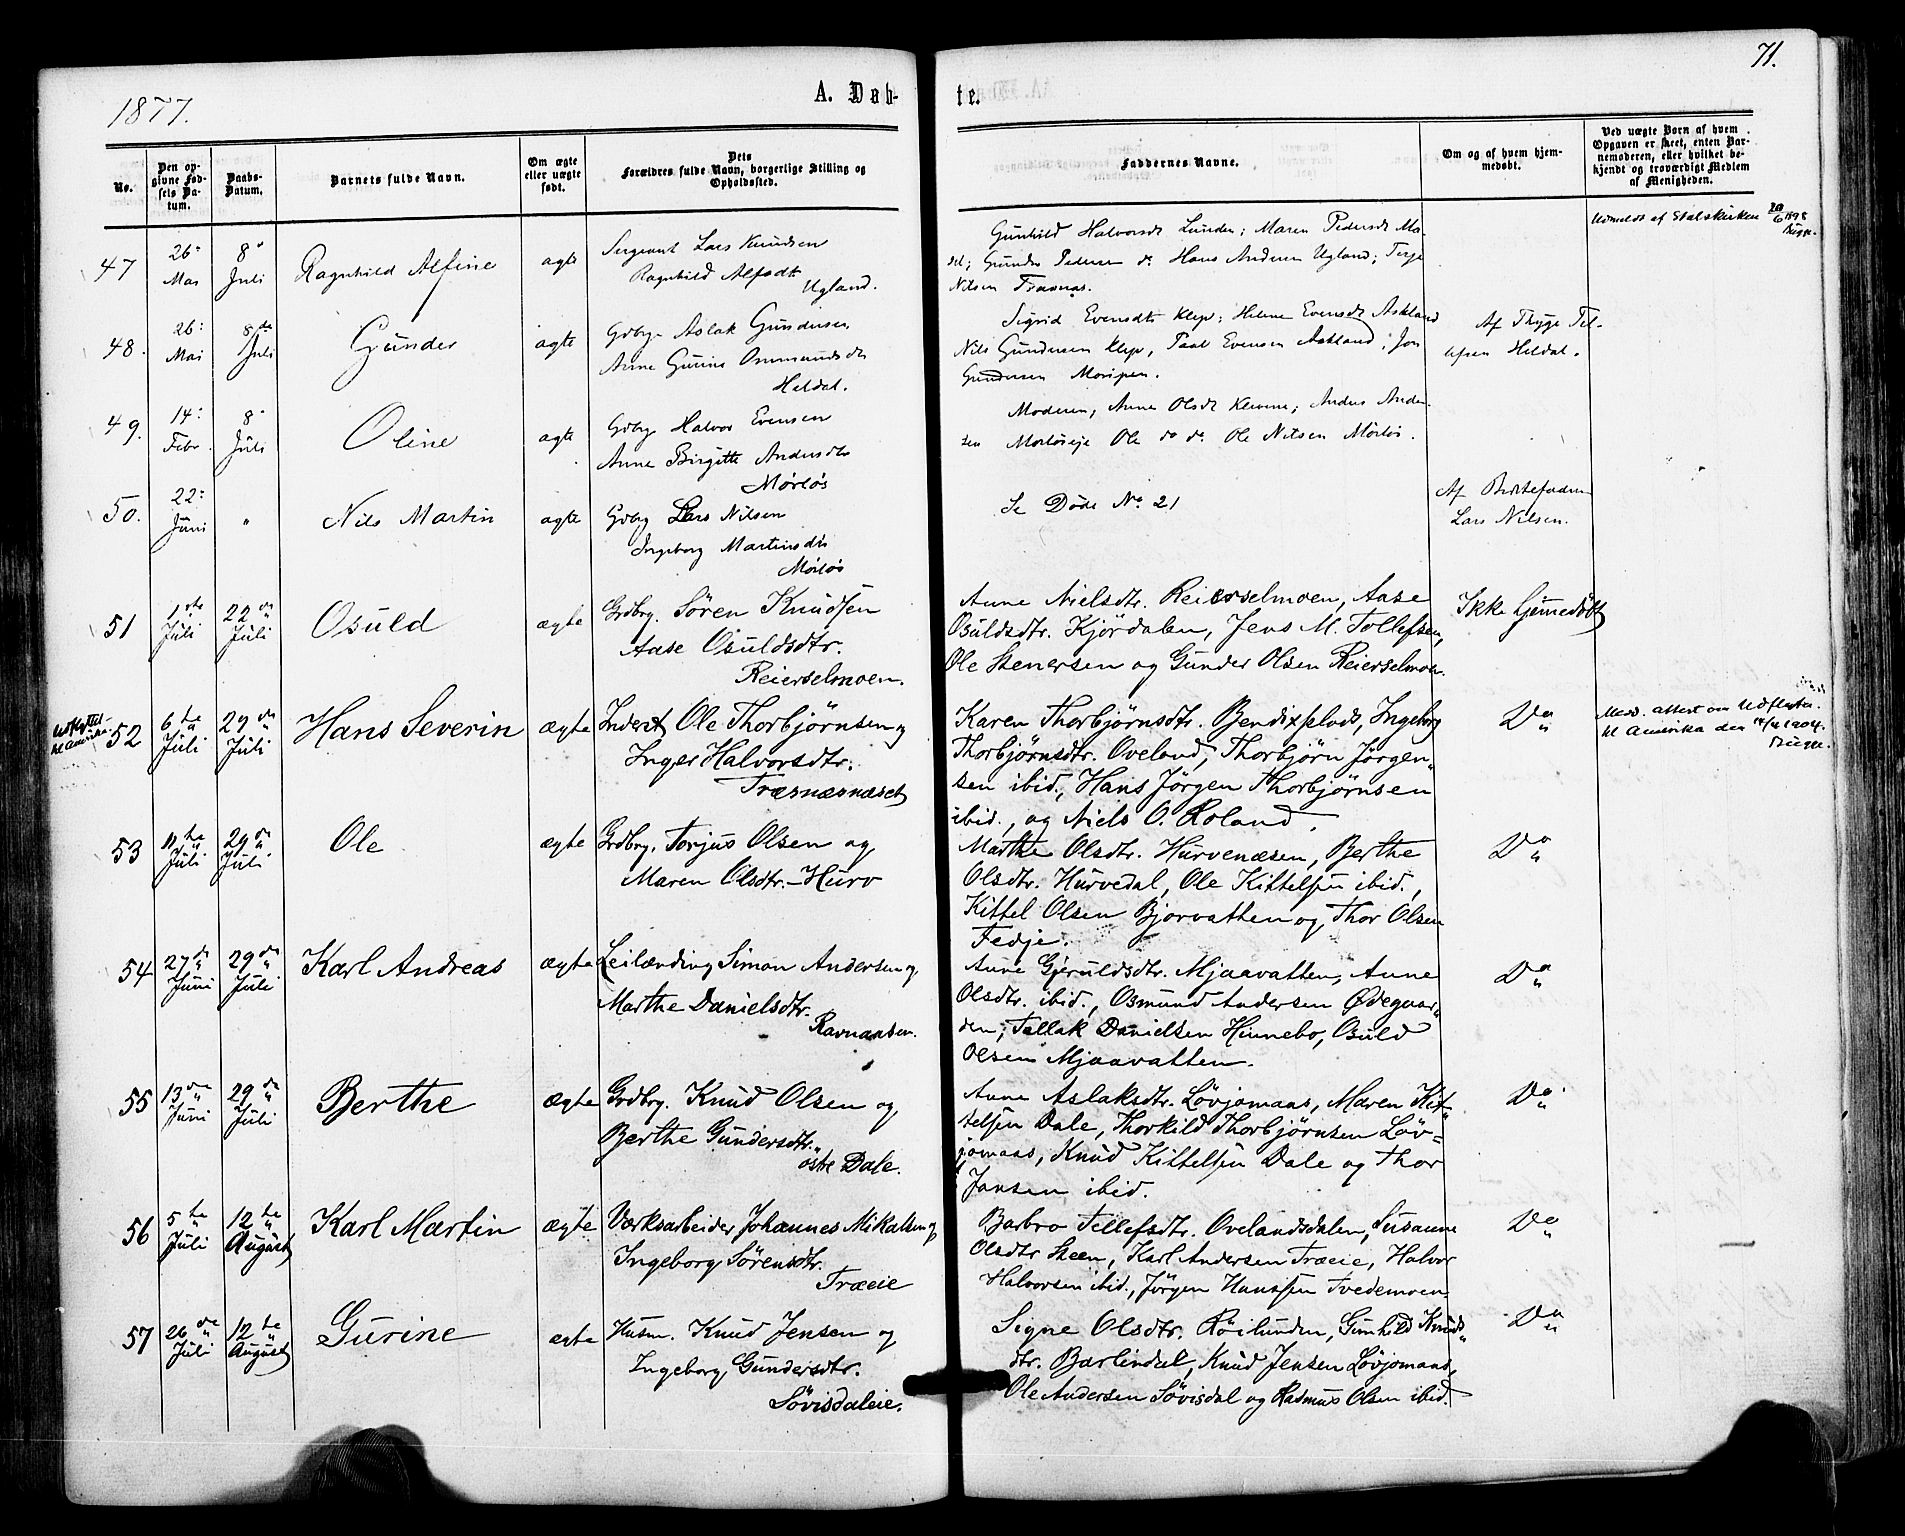 71.
1877.
A. Døb-
te.
No.
Den opgivne Fødsels Datum.
Daabs-Datum.
Barnets fulde Navn.
Om ægte eller uægte født.
Dets Forældres fulde Navn, borgerlige Stilling og Opholdssted.
Faddernes Navne.
Om og af hvem hjemmedøbt.
Ved uægte Børn af hvem Opgaven er skeet, enten Barnemoderen, eller hvilket bekjendt og troværdigt Medlem af Menigheden.
47
26:
Mai
8
Juli
Ragnhild Alfine
ægte
Sergeant Lars Knudsen
Ragnhild Alfsdtr
Ugland.
Gunhild Halvorsdt Lunden; Maren Pedersdt Ma-
del; Gunder Pedersen do Hans Andersen Ugland; Terje
Nilsen Træsnæs.
Udmeldt af Statskirken 1898
Bugge.
48.
26:
Mai
8de
Juli
Gunder
ægte
Gdbr. Aslak Gundersen
Anne Gurine Ommundsdt
Heldal.
Sigrid Evensdt Klep; Helene Evensdt Askland
Nils Gundersen Klep, Paal Evensen Askland; Jon
Gundersen Moripen.
Af Thyge Tel-
lefsen Heldal.
49.
14:
Febr.
8
Juli
Oline
ægte
Gdbr. Halvor Evensen
Anne Birgitte Andersdtr
Mörlös
Moderen, Anne Olsdt Klevene; Anders Ander-
sen Mörlöseje Ole do do Ole Nilsen Mörlös.
50.
22:
Juni
"
Nils Martin
ægte
Gdbr Lars Nilsen
Ingeborg Martinsdtr
Mörlös
Se Døde No 21
Af Bedstefaderen
Lars Nilsen.
51
1ste
Juli
22de
Juli
Osuld
ægte
Grdbrg. Sören Knudsen
Aase Osuldsdtr.
Reierselmoen.
Anne Nielsdtr. Reierselmoen, Aase
Osuldsdtr. Kjördalen, Jens M. Tollefsen,
Ole Stenersen og Gunder Olsen Reierselmoen.
Ikke hjemmedöbt
Udflyttet
til Amerika.
52
6te
Juli
29de
Juli
Hans Severin
ægte
Inderst Ole Thorbjørnsen og
Inger Halvorsdtr.
Træsnæsnæset
Karen Thorbjørnsdtr. Bendixplads, Ingeborg
Thorbjørnsdtr. Oveland, Thorbjørn Jörgen-
sen ibid., Hans Jörgen Thorbjørnsen
ibid., og Niels O. Roland.
Do
Medd. attest om Udflytn.
til Amerika den 1904.
Bugge.
53
11te
Juli
29de
Juli
Ole
ægte
Grdbrg. Torjus Olsen og
Maren Olsdtr. - Hurv
Marthe Olsdtr. Hurvenæsen, Berthe
Olsdtr. Hurvedal, Ole Kittelsen ibid.,
Kittel Olsen Bjorvatten og Thor Olsen
Tedje.
Do
54
27de
Juni
29de
Juli
Karl Andreas
ægte
Leilænding Simon Andersen og
Marthe Danielsdtr.
Ravnaasen.
Anne Gjeruldsdtr. Mjaavatten, Anne
Olsdtr. ibid., Osmund Andersen Ødegaar-
den, Tellak Danielsen Hinnebo, Osuld
Olsen Mjaavatten.
Do
55
13de
Juni
29de
Juli
Berthe
ægte
Grdbrg. Knud Olsen og
Berthe Gundersdtr.
östre Dale.
Anne Aslaksdtr. Lövjomaas, Maren Kit-
telsen Dale, Thorkild Thorbjörnsen Löv-
jomaas, Knud Kittelsen Dale og Thor
Jansen ibid.
Do
56
5te
Juli
12te
August
Karl Martin
ægte
Værksarbeider Johannes Mikalsen og
Ingeborg Sörensdtr.
Træeie
Barbro Tellefsdtr. Ovelandsdalen, Susanne
Olsdtr Steen, Karl Andersen Træeie, Halvor
Halvorsen ibid., Jörgen Hanssen Tvedemoen.
Do
57
26de
Juli
12te
August
Gurine
ægte
Husm. Knud Jensen og
Ingeborg Gundersdtr.
Sövisdaleie.
Signe Olsdtr. Röilunden, Gunhild Knuds-
dtr. Bærlindal, Knud Jensen Lövjomaas,
Ole Andersen Sövisdal og Rasmus Olsen ibid.
Do